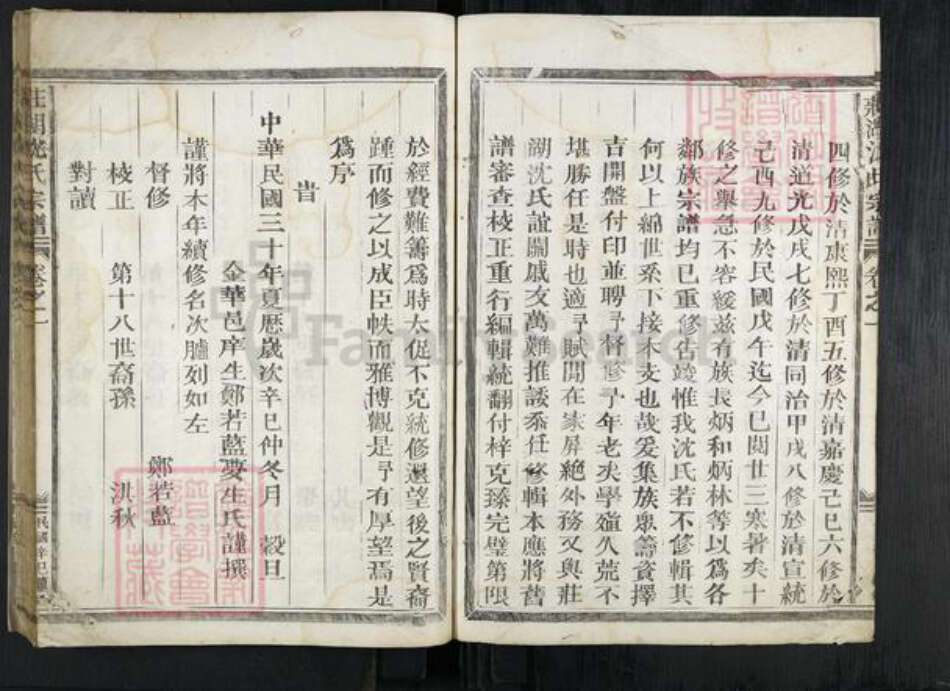 四修於清康熙丁酉五修於清嘉慶己巳六修於
清道光戊戌七修於清同治甲戌八修於清宣統
己酉九修於民國戊午迄今已閱廿三寒暑矣十
修之舉急不容緩茲有族長炳和炳林等以爲各
鄰族宗譜均已重修告竣惟我沈氏若不修輯其
何以上綿世系下接本支也哉爰集族眾籌資擇
吉開盤付印並聘予督修予年老矣學殖久荒不
堪勝任是時也適予賦閒在家屏絕外務又與莊
湖沈氏誼關戚友萬難推諉忝任修輯本應將舊
譜審查校正重行編輯統翻付梓克臻完璧第限
於經費難籌爲時太促不克統修還望後之賢裔
踵而修之以成巨帙而雅搏觀是予有厚望焉是
爲序
旹
中華民國三十年夏歷歲次辛巳仲冬月 穀旦
金華邑庠生鄭若藍 生氏謹撰
謹將本年續修名次臚列如左
督修 鄭若藍
校正 第十八世裔孫 洪秋
對讀
沈氏宗譜 卷之一
FamilySearch